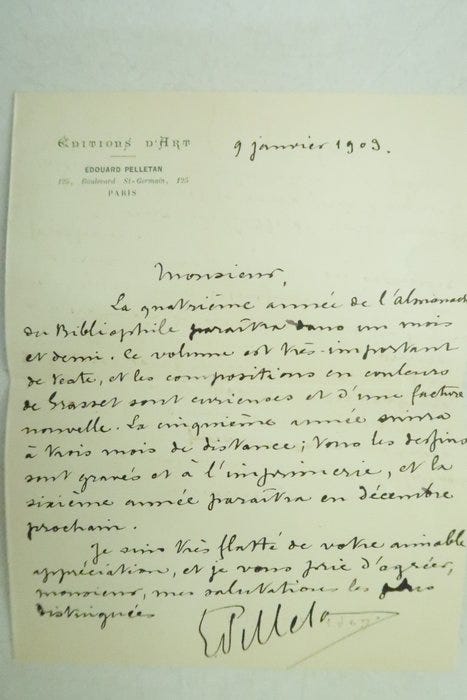 ÉDITIONS D'ART
EDOUARD PELLETAN
125, Boulevard St-Germain, 125
PARIS
9 janvier 1903.
Monsieur,
La quatrième année de l'almanach
du Bibliophile paraîtra dans un mois
et demi. Ce volume est très important
de texte, et les compositions en couleurs
de Grasset sont curieuses et d'une facture
nouvelle. La cinquième année suivra
à trois mois de distance; tous les dessins
sont gravés et à l'imprimerie, et la
sixième année paraîtra en décembre
prochain.
Je suis très flatté de votre aimable
appréciation, et je vous prie d'agréer,
monsieur, mes salutations les plus
distinguées
EPelletan